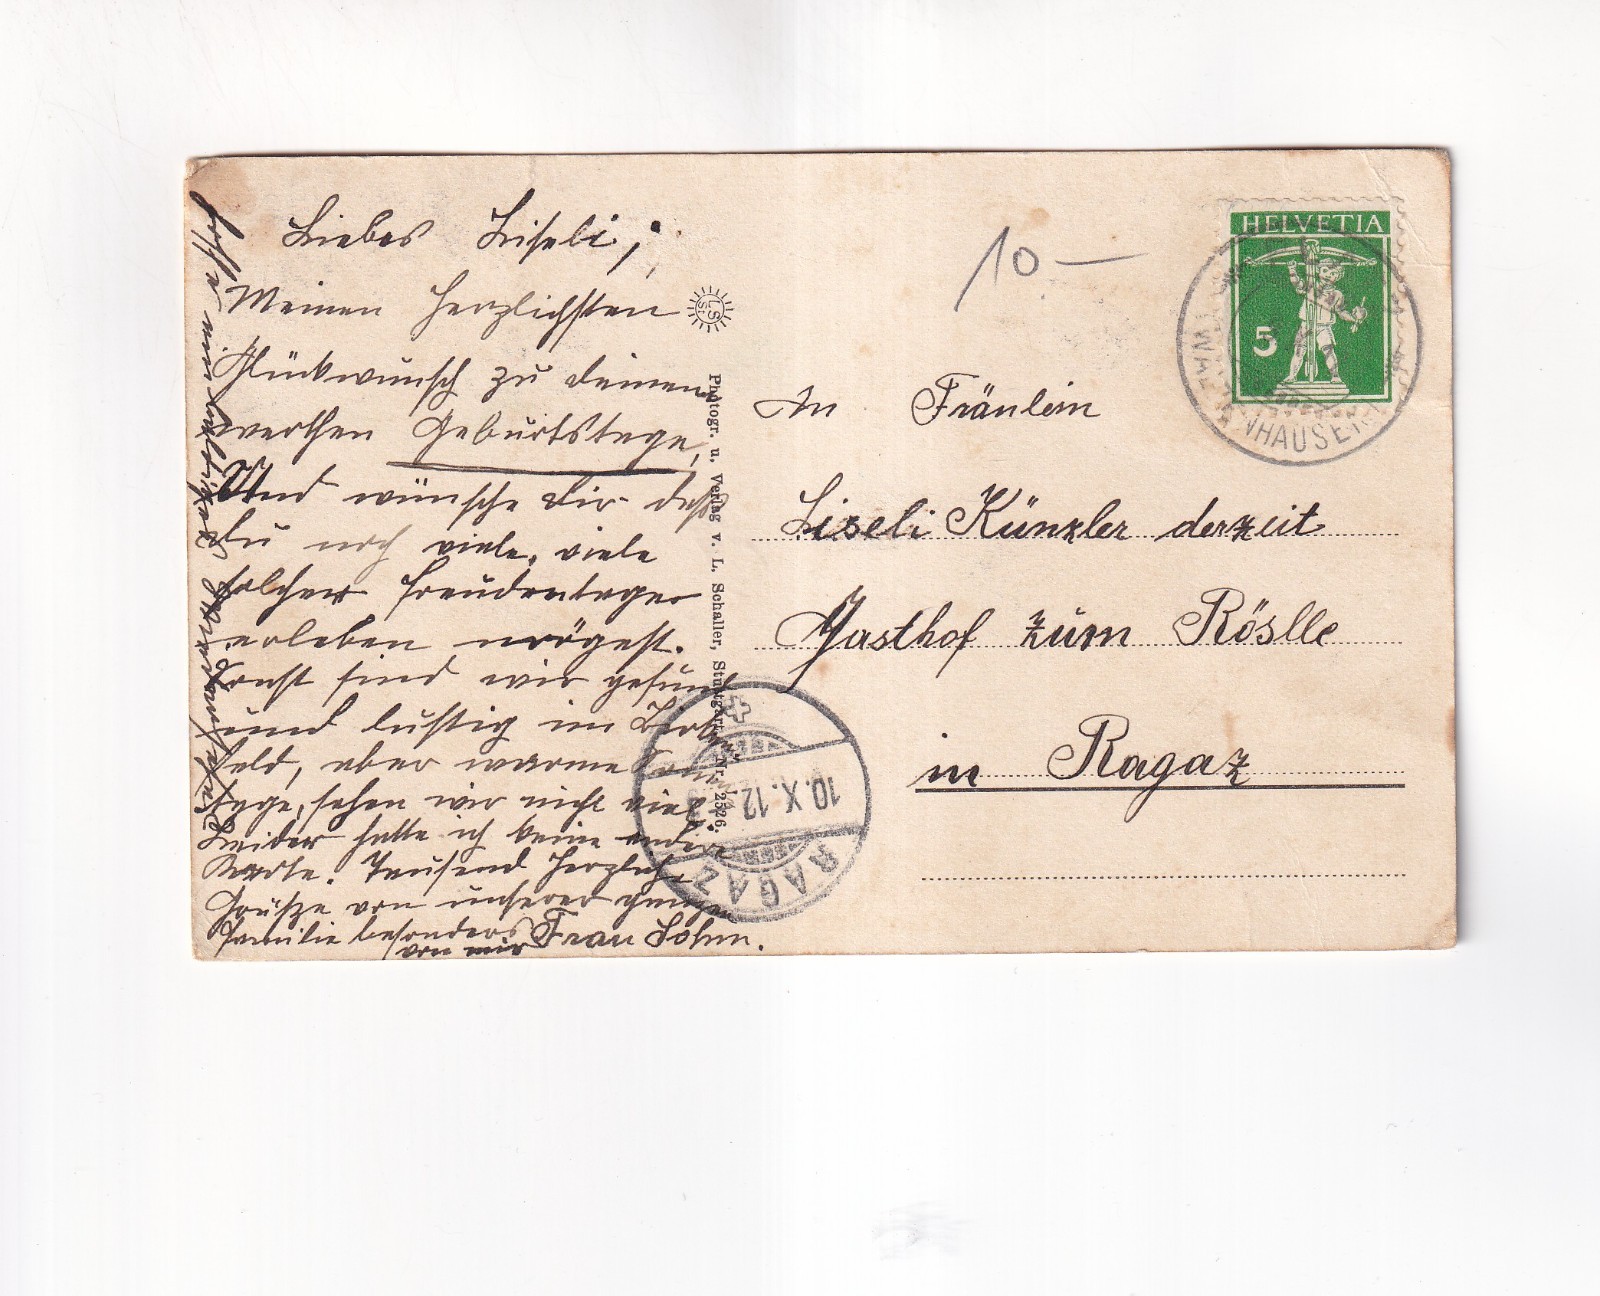 Liebes Liseli;
Meinen herzlichsten
Glückwunsch zu deinem
werthen Geburtstage,
Und wünsche dir daß
du noch viele, viele
solcher Freudentage
erleben mögest.
Sonst sind wir gesund
und lustig im
feld, aber warme
tage, sehen wir nicht viel.
Leider hatte ich keine andere
Karte. Tausend herzliche
Grüsze von unserer ganzen
Familie besonders
von mir Frau Sohm.
hoffe
L.S.S.
Photogr. u. Verlag v. L. Schaller, Stuttgart. Nr. 2526.
10 —
HELVETIA
5
An Fräulein
Liseli Künzler derzeit
Gasthof zum Röslle
in Ragaz
10.X.12
RAGAZ